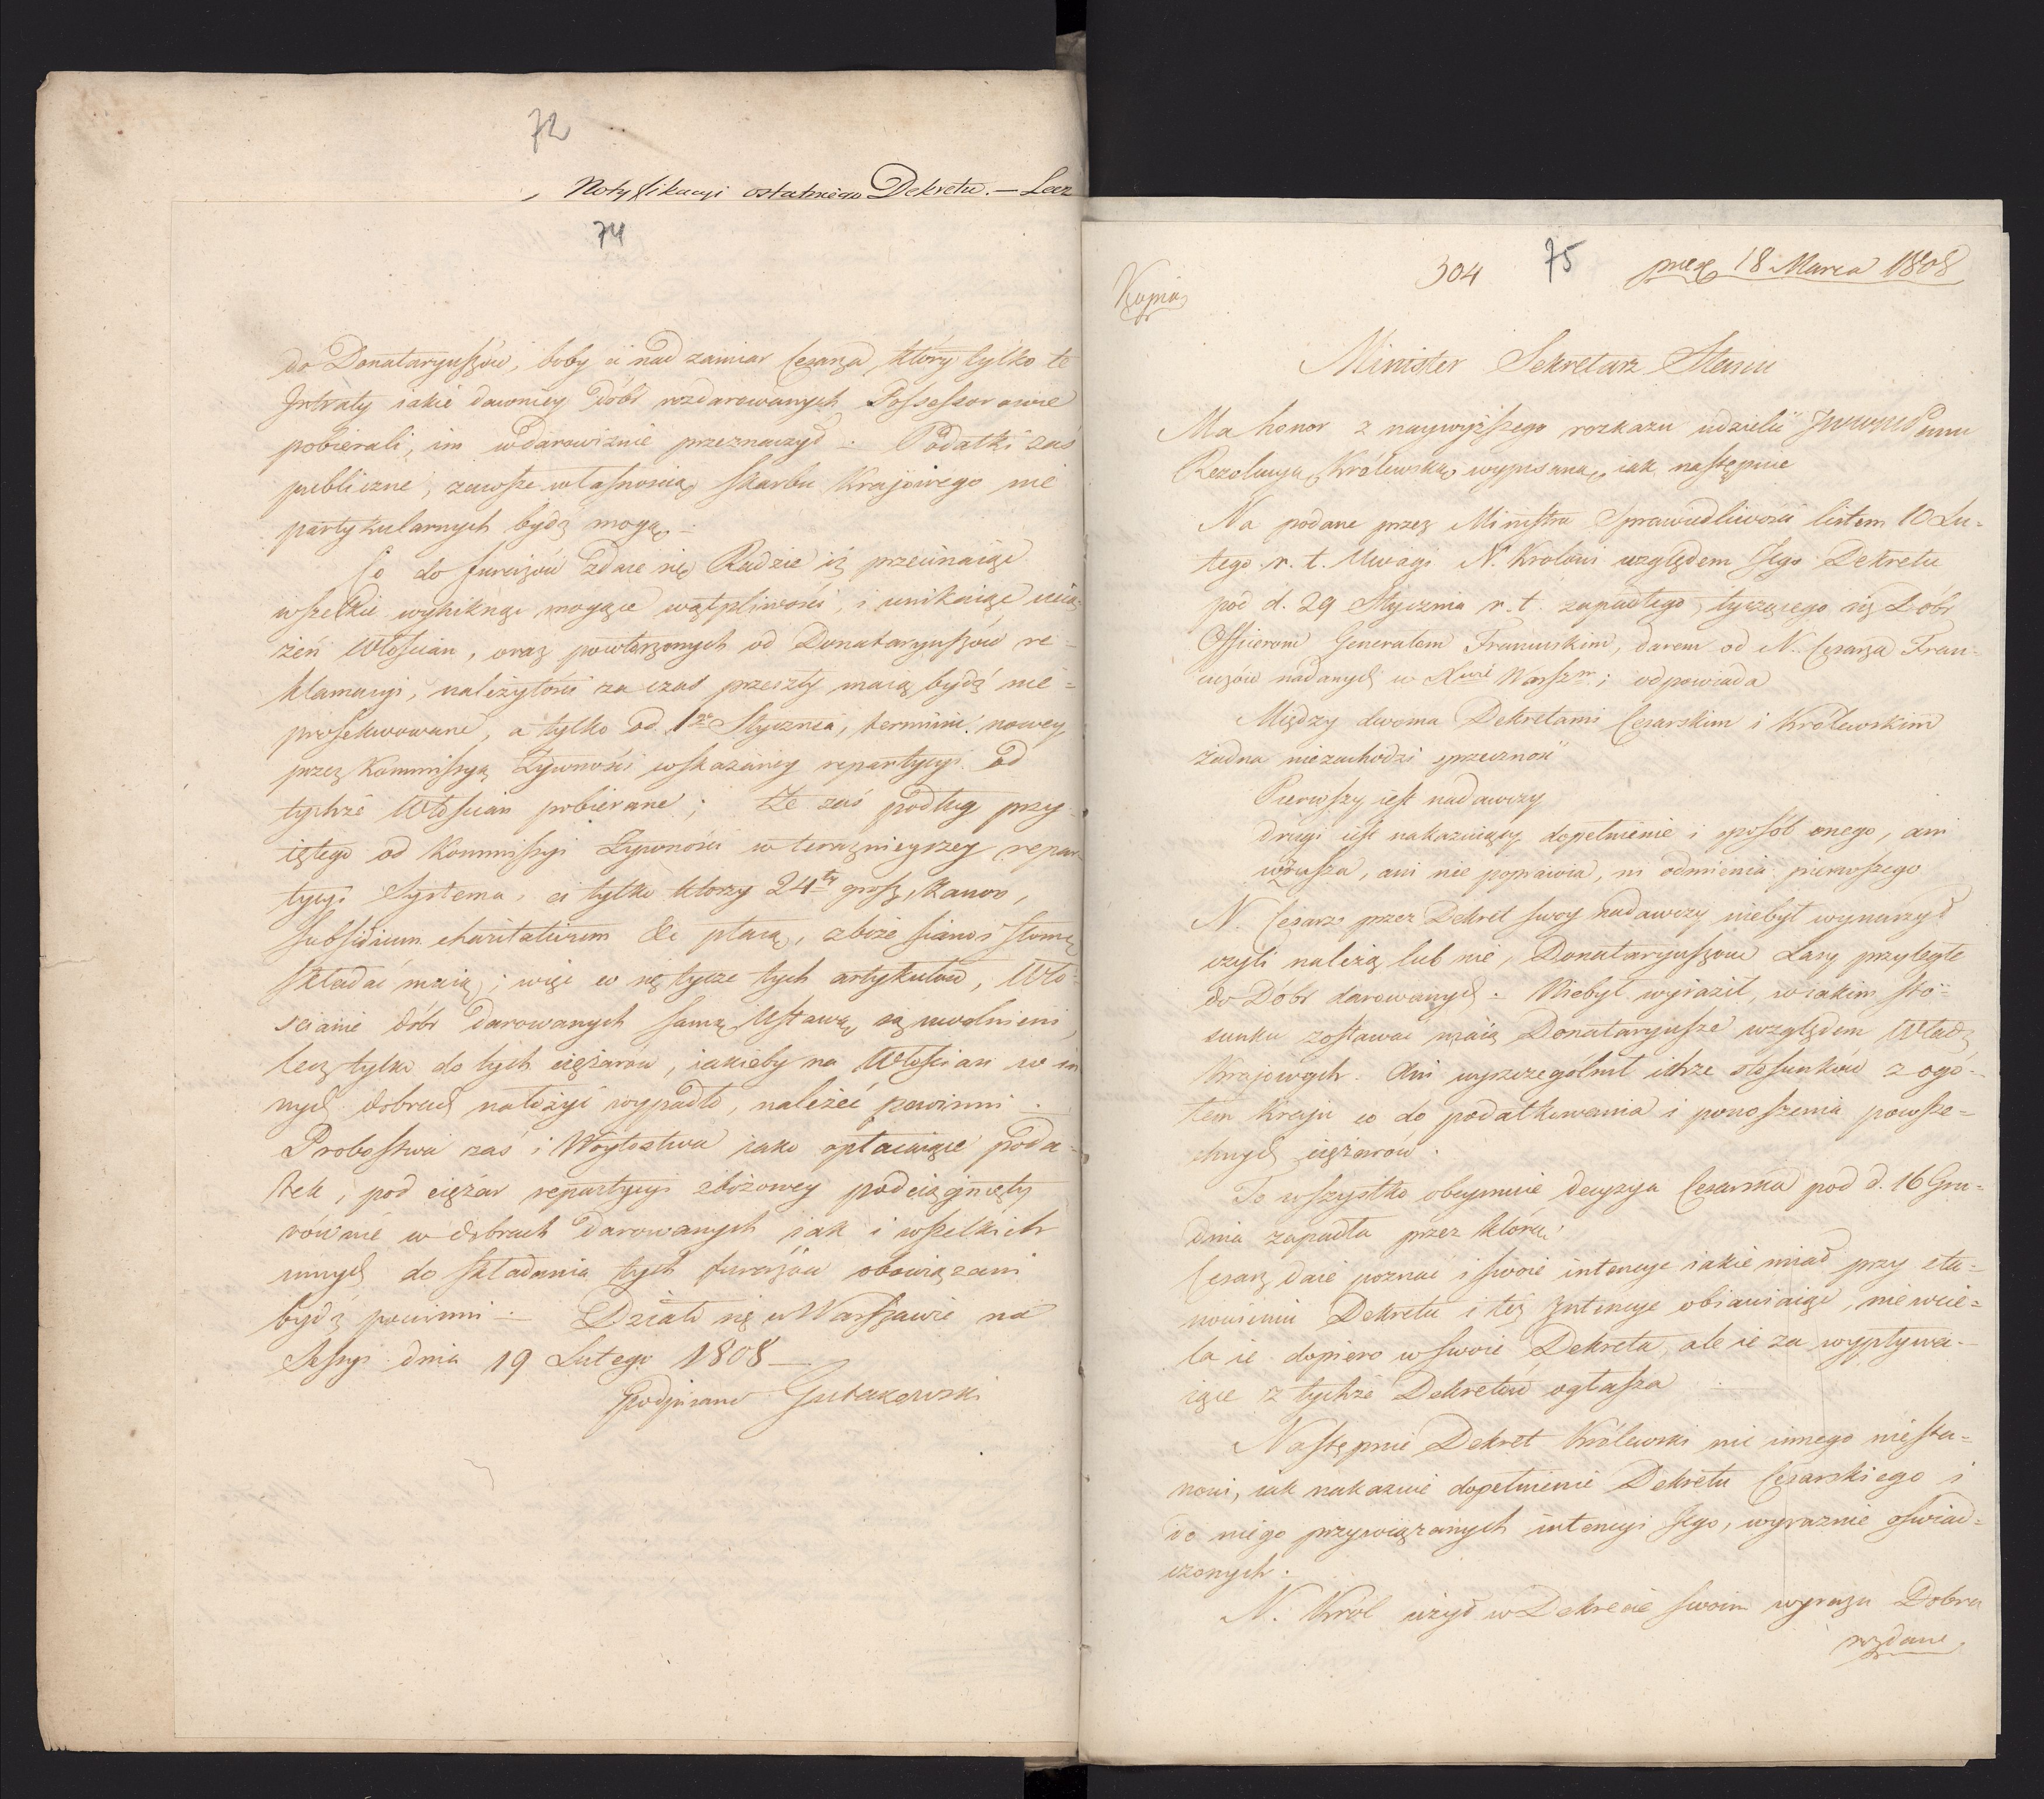 72
Notyfikacyi ostatniego Dekretu. — Lecz
74
do Donataryuszów, boby i nad zamiar Cesarza, który tylko te
Intraty iakie dawniey dóbr rozdarowanych Possessorowie
pobierali, im w darowiznie przeznaczył. Podatki zaś
publiczne, zawsze własnością Skarbu Kraiowego nie
partykularnych bydź mogą. —
Co do furażów zdaie się Radzie iż przecinaiąc
wszelkie wyniknąć mogące wątpliwości, i unikaiąc ucią-
żeń Włościan, oraz powtarzonych od Donataryuszów re-
klamacyi, należytości za czas przeszły maią bydź nie-
prosekwowane, a tylko od 1go Stycznia, terminu nowey
przez Kommissyą Żywności wskazaney repartycyi od
tychże Włościan pobierane; Że zaś podług przy-
iętego od Kommissyi Żywności w teraznieyszey repar-
tycyi Systema, ci tylko ktorzy 24ty grosz, kanon,
subsidium charitativum &c płacą, zboże siano i słomę
składać maią; więc co się tycze tych artykułów, Wło-
ścianie dóbr darowanych samą Ustawą są uwolnieni,
lecz tylko do tych ciężarów, iakieby na Włościan w in
nych dobrach nałożyć wypadło, należeć powinni —.
Probostwa zaś i Woytostwa iako opłacaiące poda-
tek, pod ciężar repartycyi zbożowey podciągnięty
równie w dobrach darowanych iak i wszelkich
innych do składania tych furażów obowiązani
bydź powinni —. Działo się w Warszawie na
Sessyi dnia 19 Lutego 1808 —
Podpisano Gutakowski
304
75
prez 18 Marca 1808
Kopia
Minister Sekretarz Stanu
Ma honor z naywyższego rozkazu udzielić
Rezolucyą Królewską wypisaną, iak następuie
Na podane przez Ministra Sprawiedliwości listem 10 Lu-
tego r. t. Uwagi N. Krolowi względem Jego Dekretu
pod d. 29 Stycznia r. t. zapadłego, tyczącego się Dóbr
Officerom Generałom Francuskim, darem od N. Cesarza Fran-
cuzów nadanych w Xwie Warszm; odpowiada
Między dwoma Dekretami Cesarskim i Królewskim
żadna niezachodzi sprzeczność
Pierwszy iest nadawczy
drugi iest nakazuiący dopełnienie i sposób onego, ani
wzrusza, ani nie poprawia, ni odmienia pierwszego
N. Cesarz przez Dekret swoy nadawczy niebył wynurzył
czyli należą lub nie, Donataryuszom Lasy przyległe
do Dóbr darowanych. Niebył wyraził, w iakim sto-
sunku zostawać maią Donataryusze względem Władz
Kraiowych. Ani wyszczególnił ichże stosunków z ogó-
łem Kraiu co do podatkowania i ponoszenia powsze-
chnych ciężarów.
To wszystko obeymuie decyzya Cesarska pod d. 16 Gru-
dnia zapadła przez którą:
Cesarz daie poznać i swoie intencye iakie miał przy sta-
nowieniu Dekretu i też Intencye obiawiaiąc, nie wcie-
la ie dopiero w swoie Dekreta, ale ie za wypływa-
iące z tychże Dekretów ogłasza
Następnie Dekret Królewski nic innego niesta-
nowi, iak nakazuie dopełnienie Dekretu Cesarskiego i
do niego przywiązanych intencyi Jego, wyraznie oswiad-
czonych.
N. Król użył w Dekrecie swoim wyrazu Dobra
rozdane